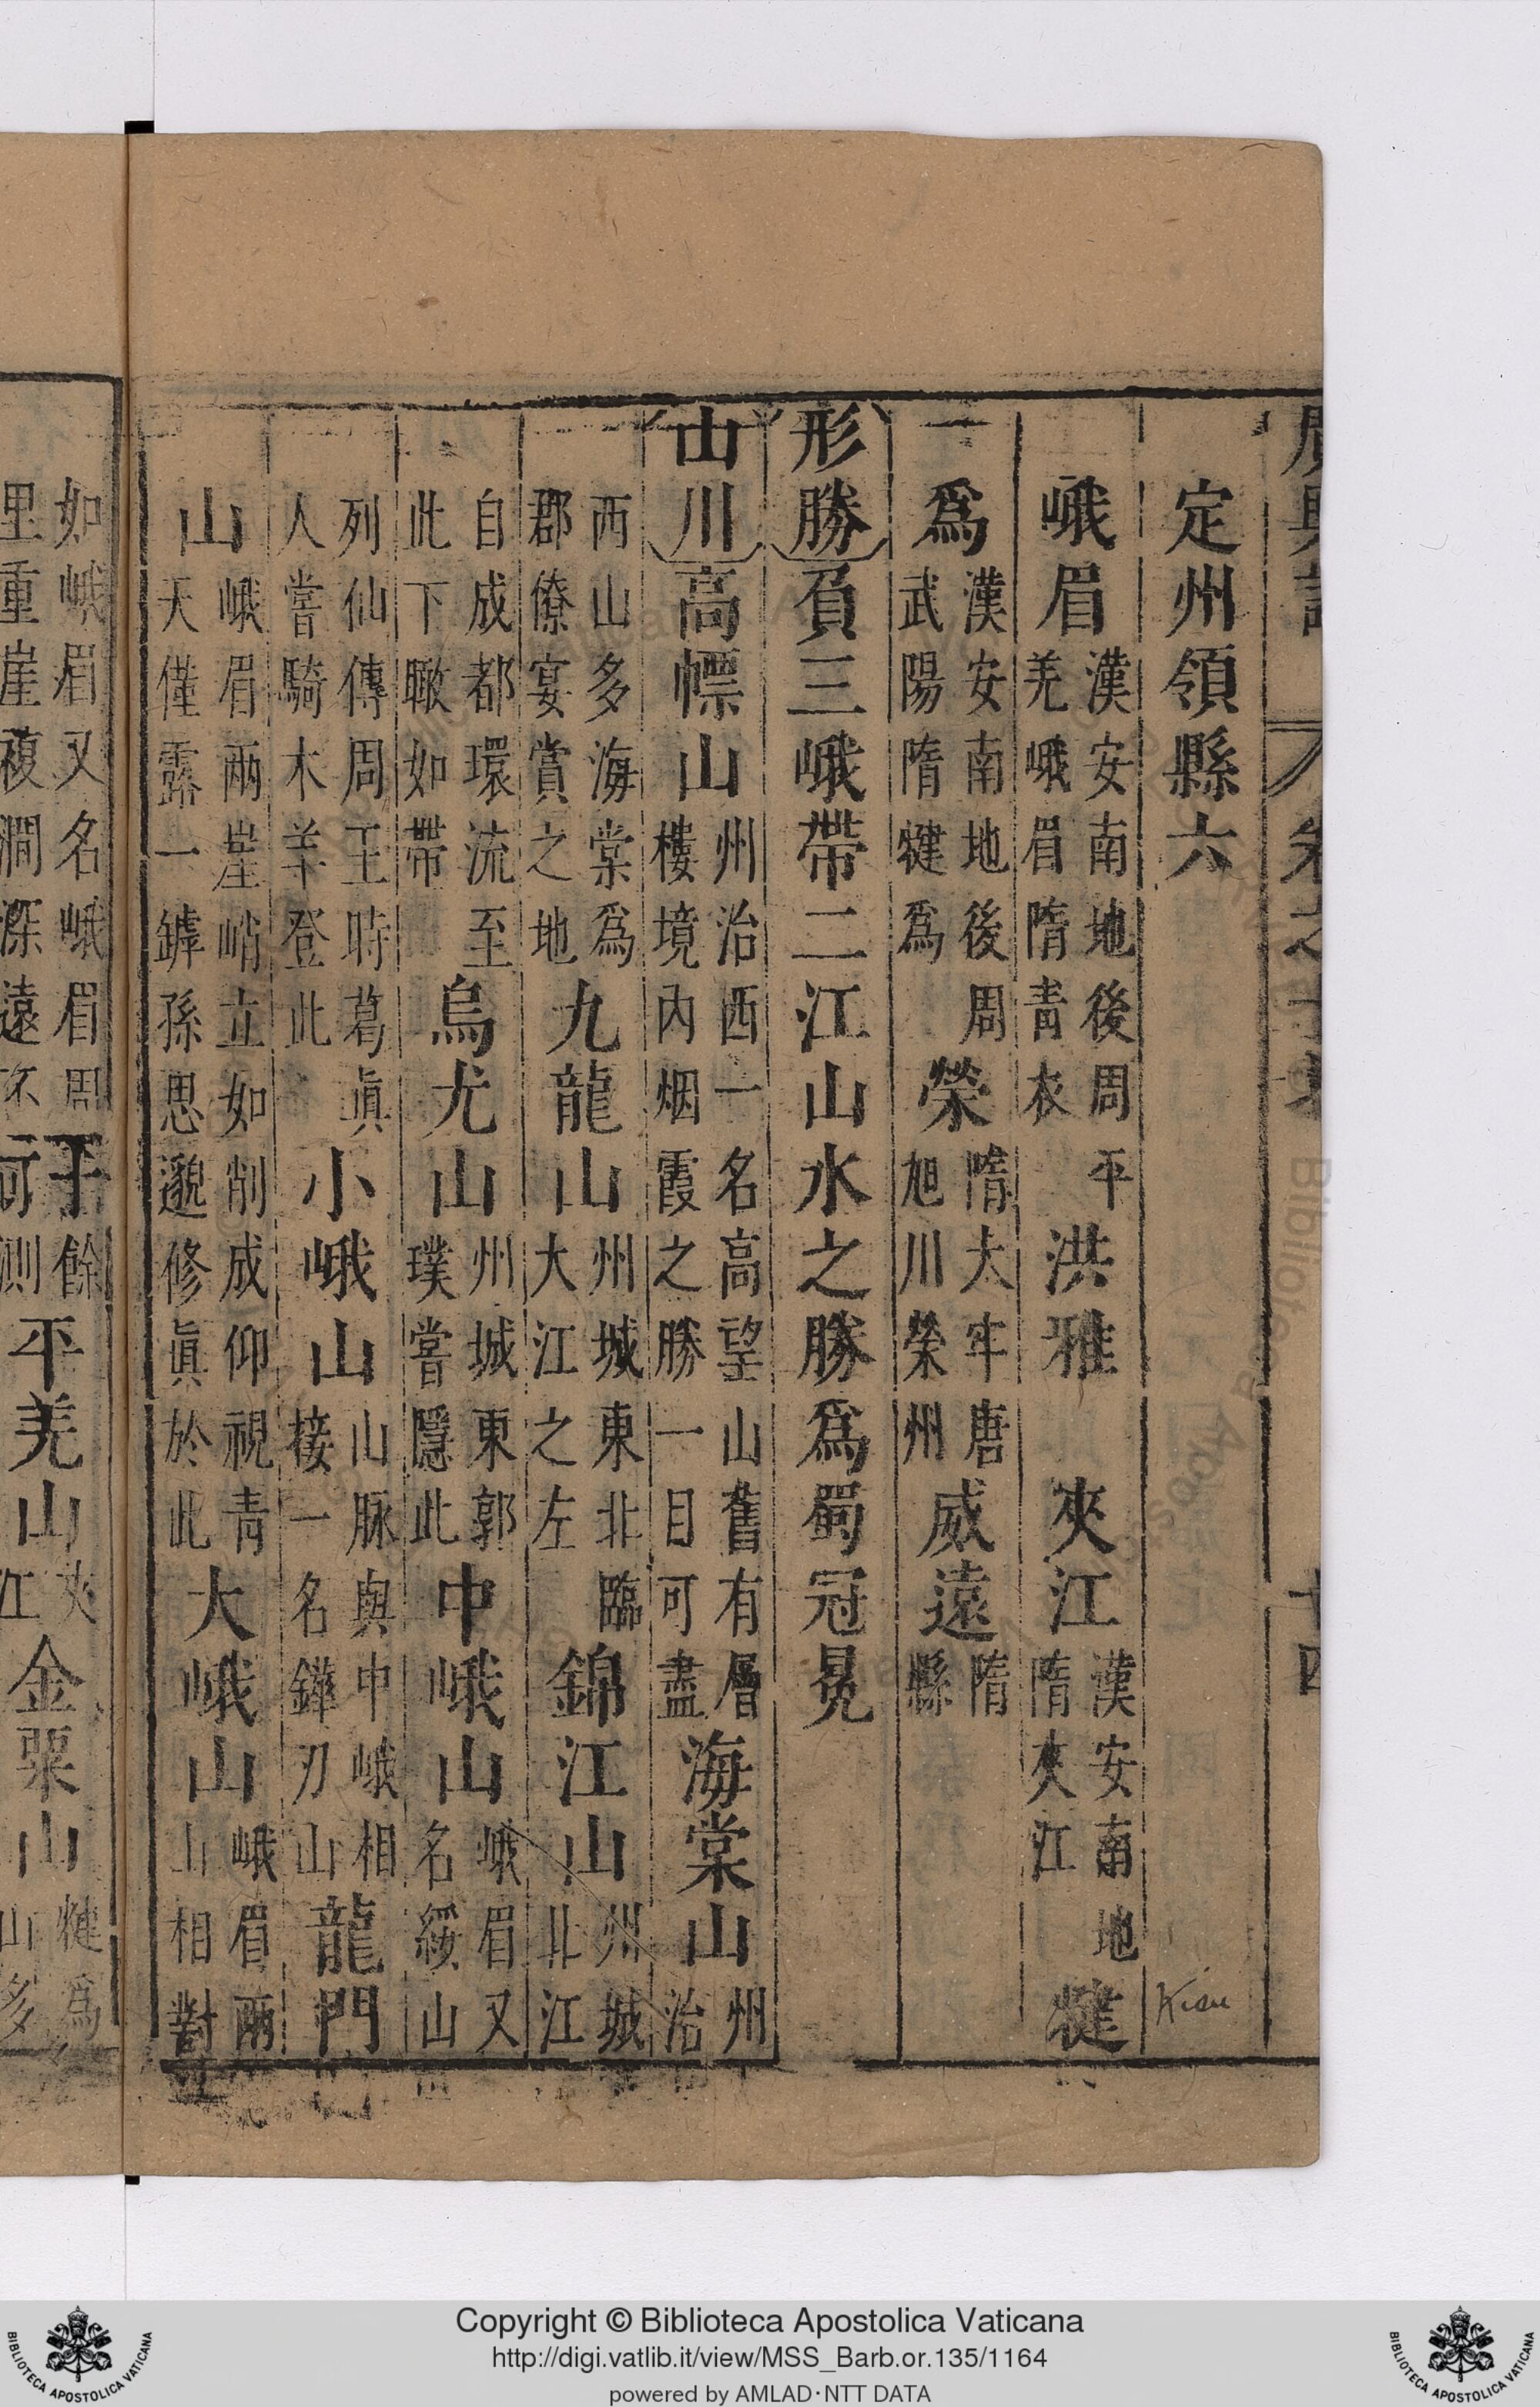 定州領縣六
峨眉漢安南地後周平羌峨眉隋青衣洪雅　夾江漢安南地隋夾江犍
爲漢安南地後周武陽隋犍爲榮隋大牢唐旭川榮州威遠隋縣
形勝負三峨帶二江山水之勝爲蜀冠冕
山川高幖山州治西一名高望山舊有層樓境內烟霞之勝一目可盡海棠山州治
西山多海棠爲郡僚宴賞之地九龍山州城東北臨大江之左錦江山州城北江
自成都環流至此下瞰如帶烏尤山州城東郭璞嘗隱此中峨山峨眉又名綏山
列仙傳周王時葛眞人嘗騎木羊登此小峨山山脉與中峨相接一名鏵刃山龍門
山峨眉兩崖峭立如削成仰視青天僅露一罅孫思邈修眞於此大峨山峨眉兩山相對
如峨眉又名峨眉周千餘里重崖複澗深遠不可測平羌山夾江金粟山犍爲山多
Kien
Copyright © Biblioteca Apostolica Vaticana
http://digi.vatlib.it/view/MSS_Barb.or.135/1164
powered by AMLAD·NTT DATA
BIBLIOTECA APOSTOLICA VATICANA
BIBLIOTECA APOSTOLICA VATICANA